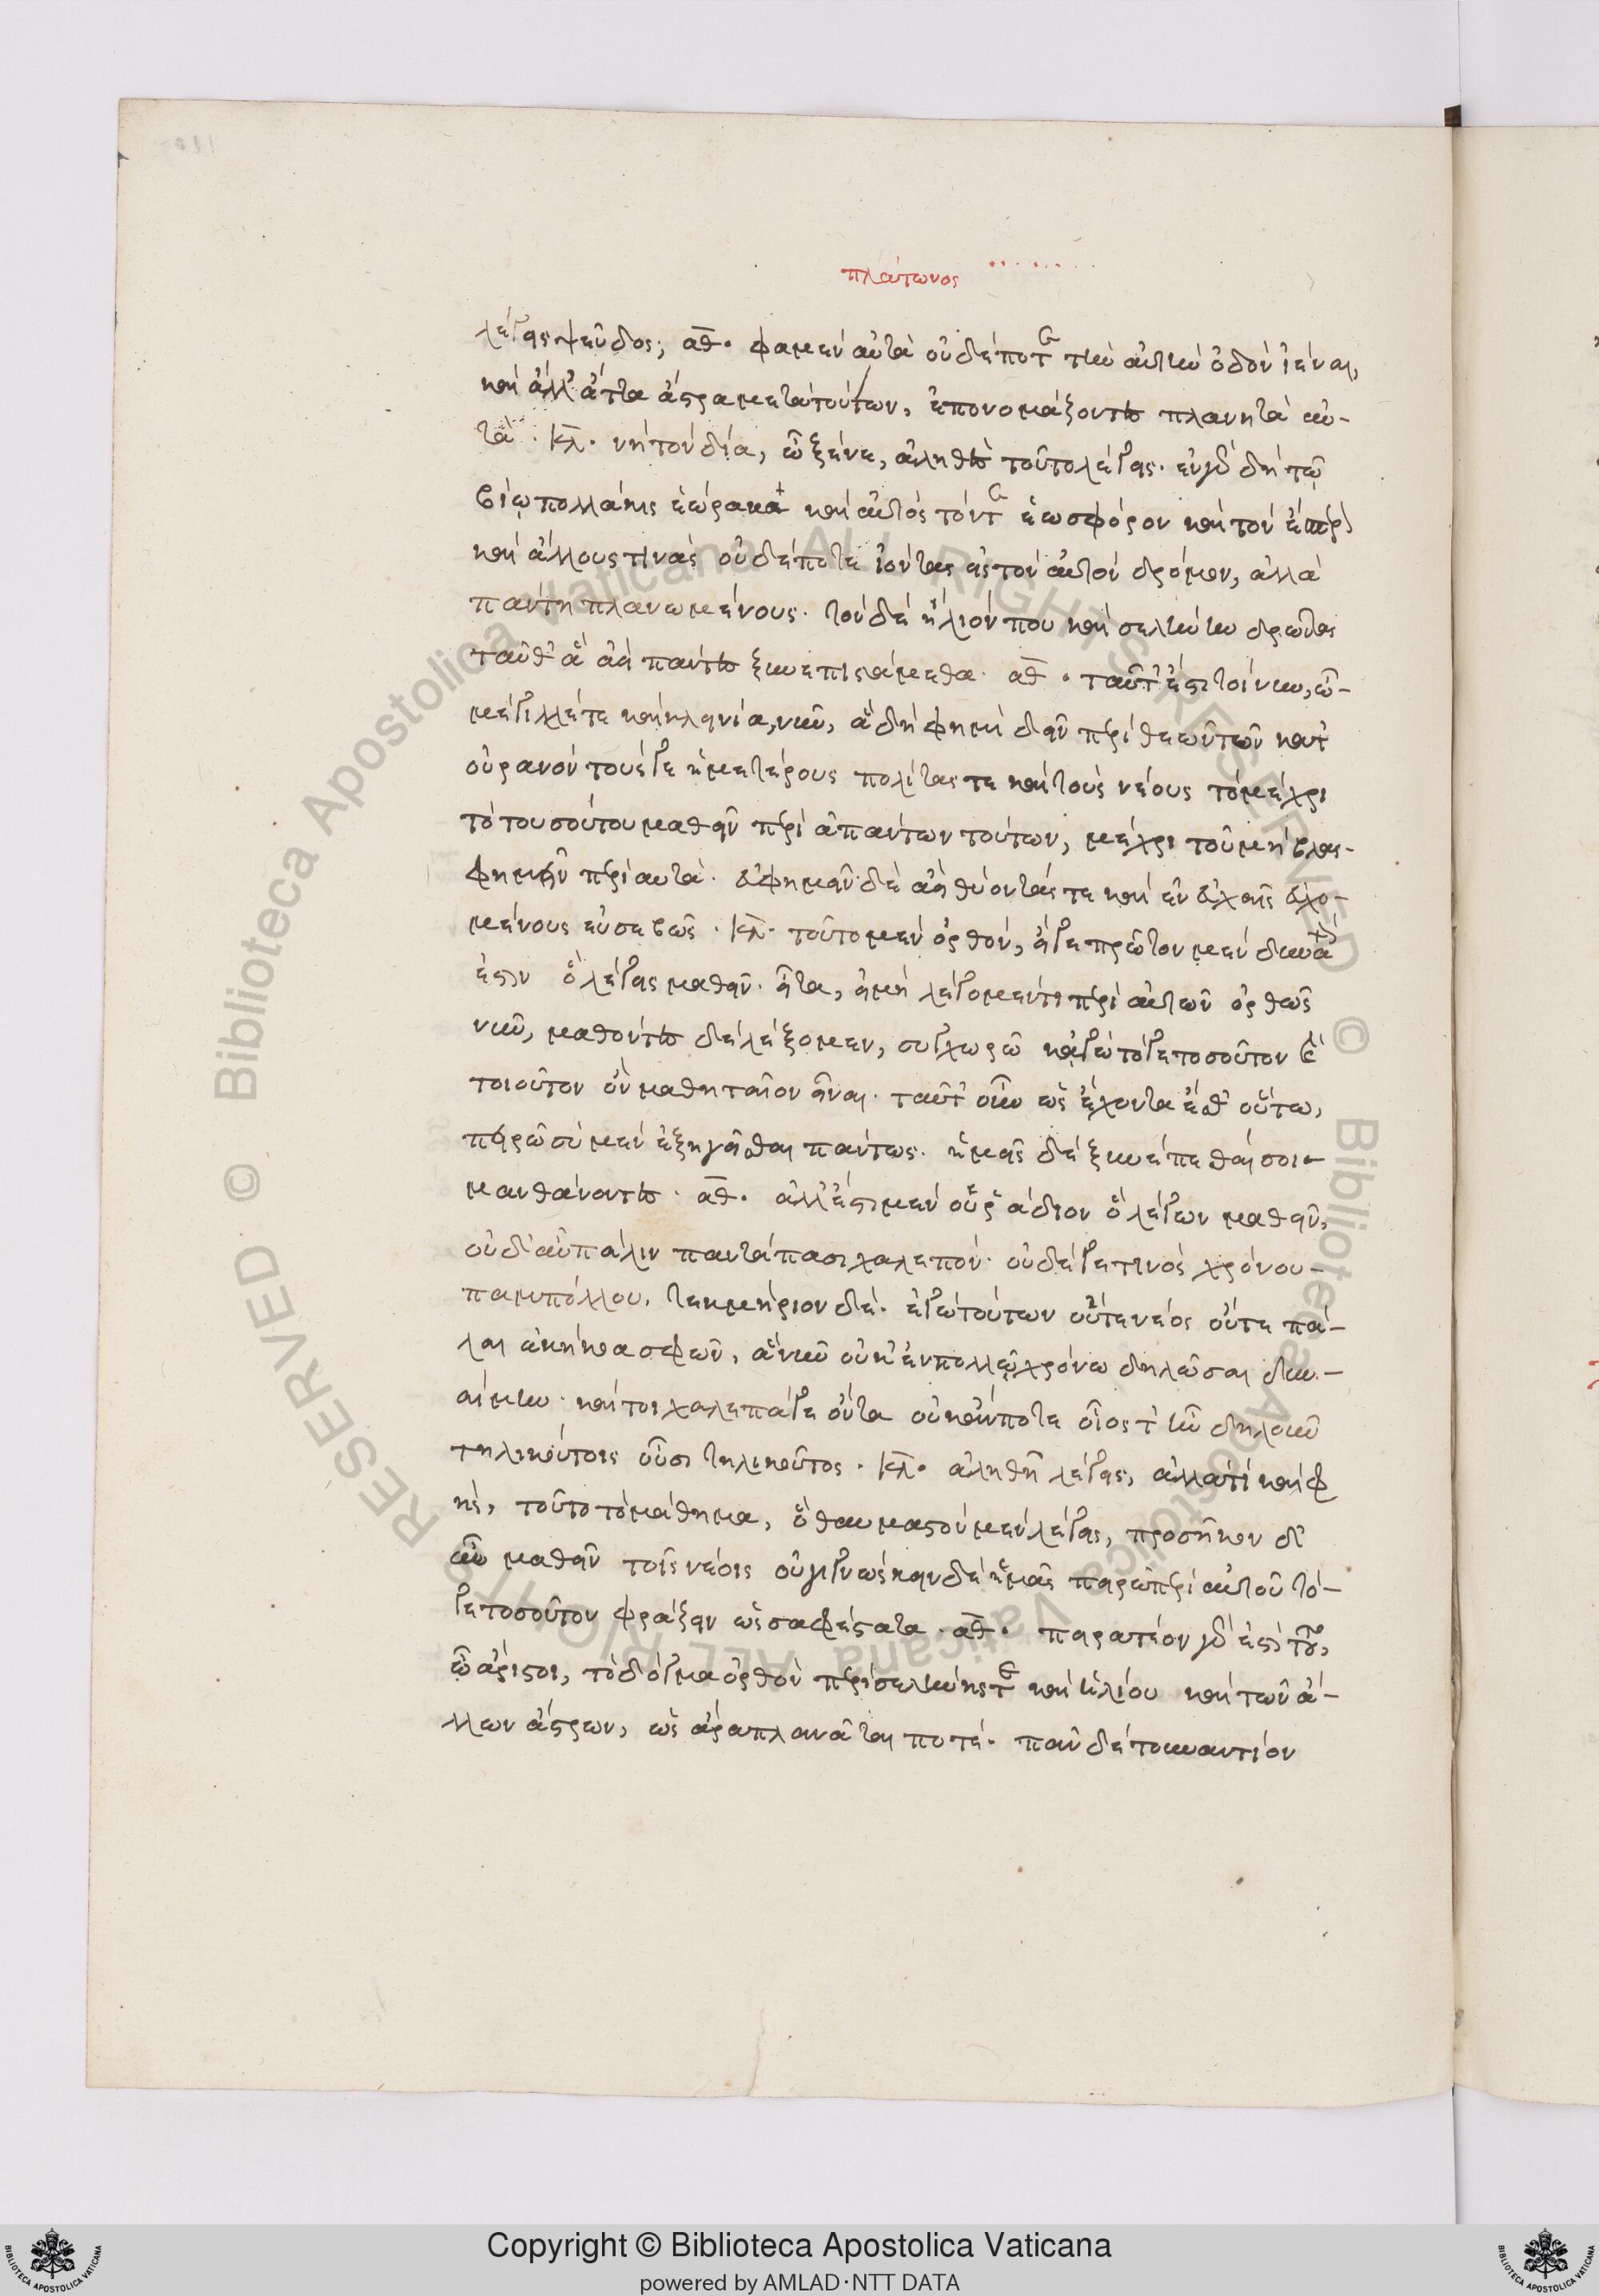 πλάτωνος
λέγεις ψεῦδος; αθ. φαμὲν αὐτὰ οὐδέποτε τὴν αὐτὴν ὁδὸν ἰέναι,
καὶ ἄλλ' ἄττα ἄστρα μετὰ τούτων, ἐπονομάζοντες πλανητὰ αὐ-
τά. κλ. νὴ τὸν δία, ὦ ξένε, ἀληθὲς τοῦτο λέγεις. ἐν γὰρ δὴ τῷ
βίῳ πολλάκις ἑώρακα καὶ αὐτὸς τόν τε ἑωσφόρον καὶ τὸν ἕσπερον
καὶ ἄλλους τινὰς οὐδέποτε ἰόντας εἰς τὸν αὐτὸν δρόμον, ἀλλὰ
πάντῃ πλανωμένους. τὸν δὲ ἥλιόν που καὶ σελήνην δρῶντας
ταῦθ' ἃ ἀεὶ πάντες ξυνεπιστάμεθα. αθ. ταῦτ' ἔστι τοίνυν, ὦ-
μέγιλλέ τε καὶ κλεινία, νῦν, ἃ δή φημι δεῖν περὶ θεῶν τῶν κατ'
οὐρανὸν τούς γε ἡμετέρους πολίτας τε καὶ τοὺς νέους τὸ μέχρι
τὸ τουσούτου μαθεῖν περὶ ἁπάντων τούτων, μέχρι τοῦ μὴ βλασ-
φημεῖν περὶ αυτά. εὐφημεῖν δὲ ἀεὶ θύοντάς τε καὶ ἐν εὐχαῖς εὐχο-
μένους εὐσεβῶς. κλ. τοῦτο μὲν ὀρθόν, εἴ γε πρῶτον μὲν δυνατόν
ἐστιν ὃ λέγεις μαθεῖν. εἶτα, εἰ μὴ λέγομέν τι περὶ αὐτῶν ὀρθῶς
νῦν, μαθόντες δὲ λέξομεν, συγχωρῶ κἀγὼ τό γε τοσοῦτον καὶ
τοιοῦτον ὂν μαθητέον εἶναι. ταῦτ' οὖν ὡς ἔχοντα ἔσθ' οὕτω,
πειρῶ σὺ μὲν ἐξηγεῖσθαι πάντως. ἡμεῖς δὲ ξυνέπεσθαί σοι-
μανθάνοντες. αθ. ἀλλ' ἔστι μὲν οὐ ῥᾴδιον ὃ λέγων μαθεῖν,
οὐδ' αὖ πάλιν παντάπασι χαλεπόν. οὐδέ γε τινὸς χρόνου-
παμπόλλου. τεκμήριον δέ. ἐγὼ τούτων οὔτε νέος οὔτε πά-
λαι ἀκήκοα σφῶν, ἃ νῦν οὐκ ἐν πολλῷ χρόνῳ δηλῶσαι δυν-
αίμην. καίτοι χαλεπά γε ὄντα οὐκ ἄν ποτε οἷός τ' ἦν δηλοῦν
τηλικούτοις οὖσι τηλικοῦτος. κλ. ἀληθῆ λέγεις, ἀλλὰ τί καὶ φ
ῂς, τοῦτο τὸ μάθημα, ὃ θαυμαστὸν μὲν λέγεις, προσῆκον δ'
αὖ μαθεῖν τοῖς νέοις οὐ γιγνώσκειν δὲ ἡμᾶς πειρῶ περὶ αὐτοῦ τό-
γε τοσοῦτον φράζειν ὡς σαφέστατα. αθ. πειρατέον γὰρ ἐστὶ τοῦτο,
ὦ ἄριστοι, τὸ δόγμα ὀρθὸν περὶ σελήνης τε καὶ ἡλίου καὶ τῶν ἄ-
λλων ἄστρων, ὡς ἄρα πλανᾶταί ποτέ. πᾶν δὲ τουναντίον
Copyright © Biblioteca Apostolica Vaticana
powered by AMLAD·NTT DATA